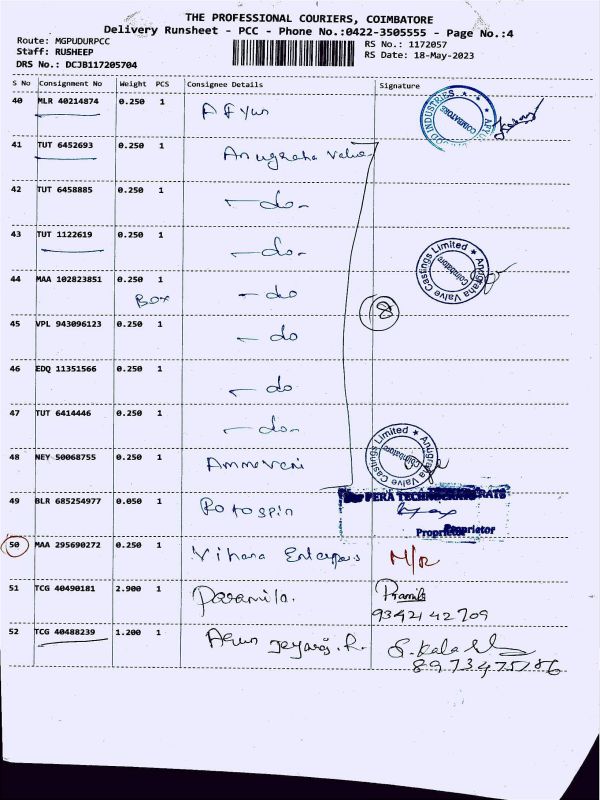 THE PROFESSIONAL COURIERS, COIMBATORE
Delivery Runsheet - PCC - Phone No.:0422-3505555 - Page No.:4
Route: MGPUDURPCC
RS No.: 1172057
Staff: RUSHEEP
RS Date: 18-May-2023
DRS No.: DCJB117205704
S No Consignment No Weight PCS Consignee Details Signature
40 MLR 40214874 0.250 1
41 TUT 6452693 0.250 1 Anugraha Valve
42 TUT 6458885 0.250 1 - do -
43 TUT 1122619 0.250 1 - do -
44 MAA 102823851 0.250 1 - do
BOX
8
45 VPL 943096123 0.250 1 - do
46 EDQ 11351566 0.250 1 - do
47 TUT 6414446 0.250 1 - do -
48 NEY 50068755 0.250 1 Ammaveni
49 BLR 685254977 0.050 1 Rotospin
50 MAA 295690272 0.250 1 Vihana
51 TCG 40490181 2.900 1 Paramila.
9342142709
52 TCG 40488239 1.200 1 Arun Jeyaraj.R.
8973475186
Anugraha Valve Castings Limited
Coimbatore
Anugraha Valve Castings Limited
Coimbatore
INDUSTRIES
COIMBATORE
Proprietor